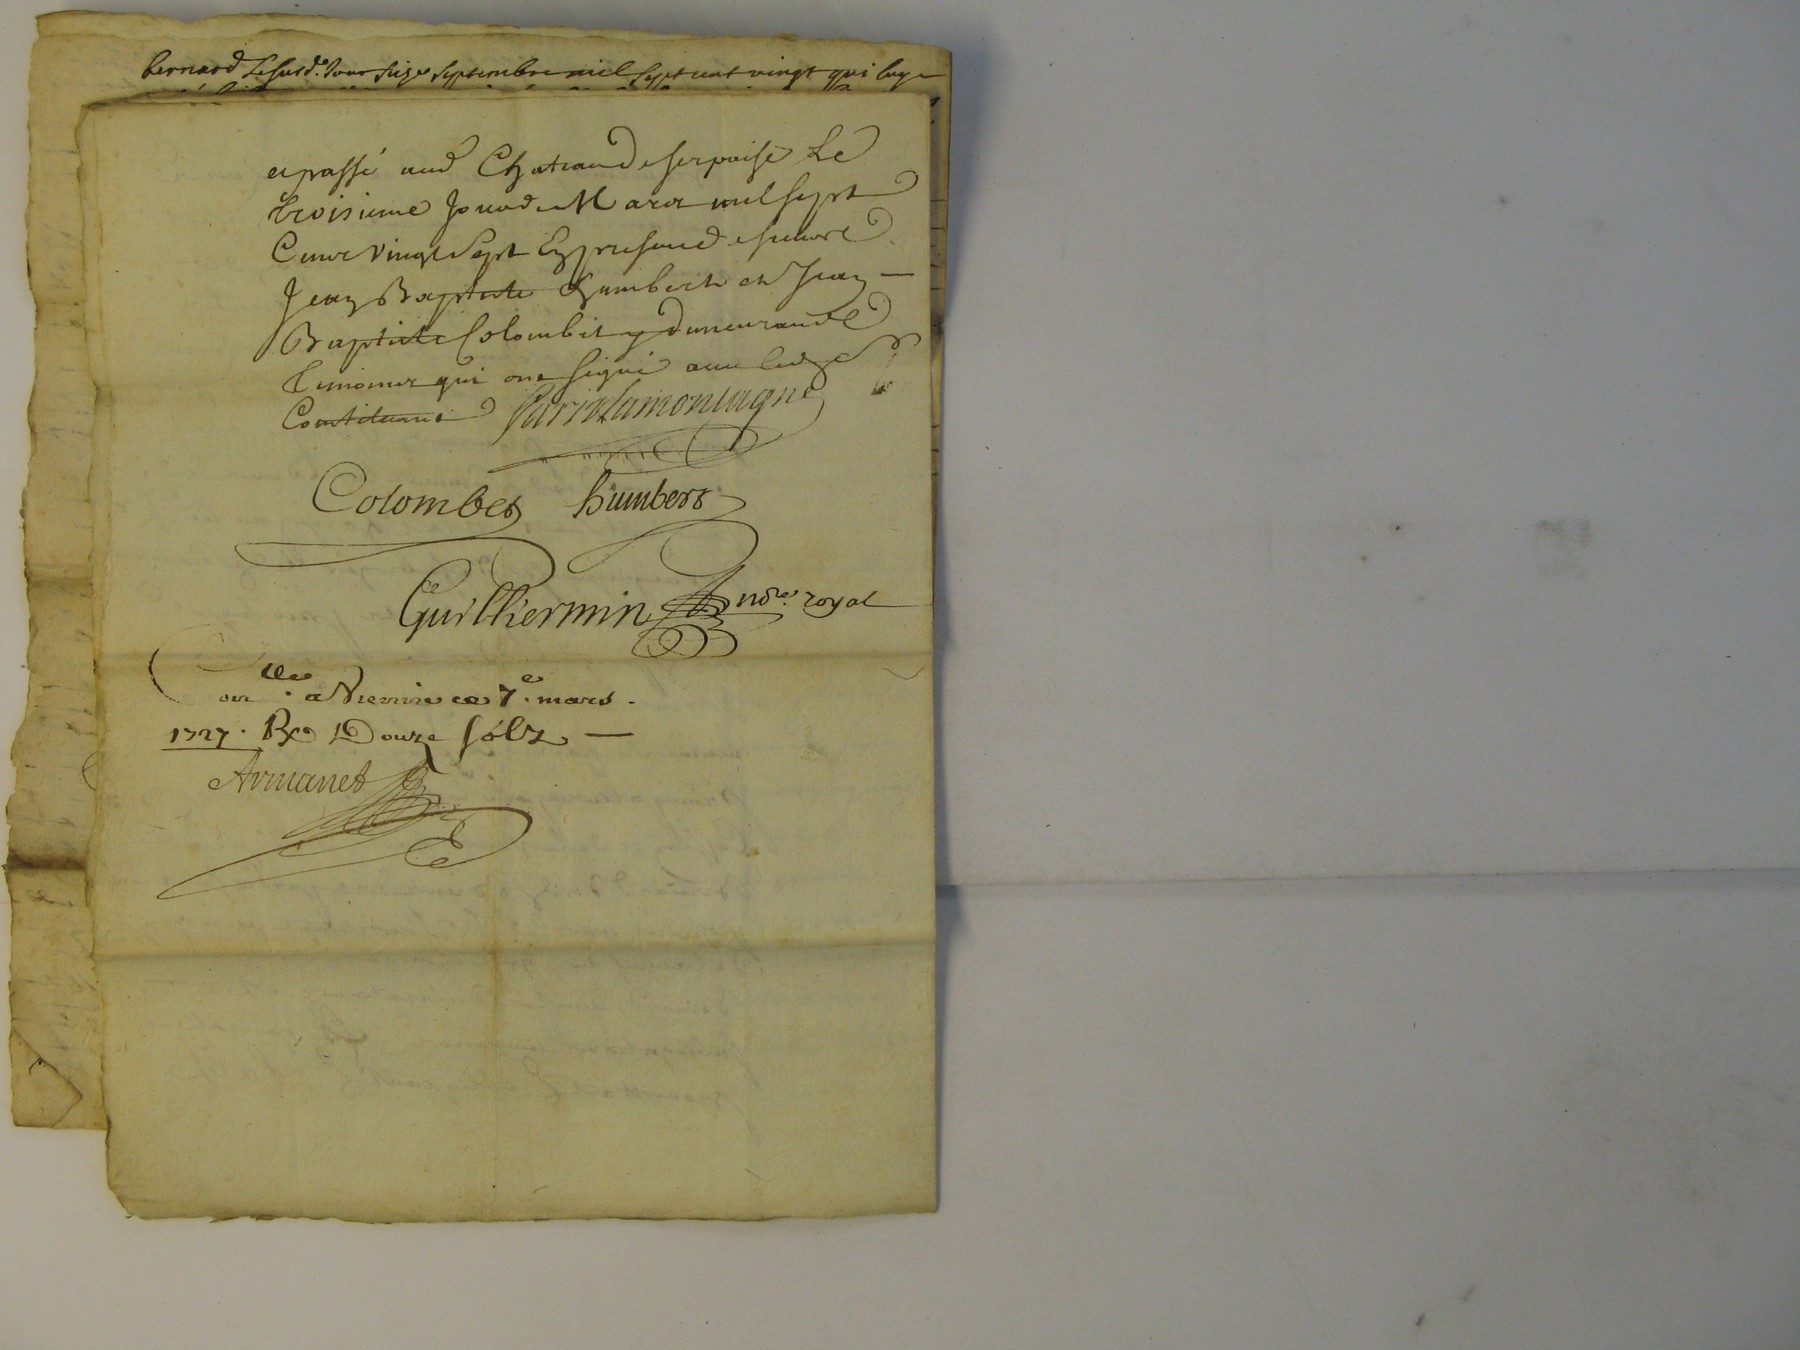 bernard Lesusd.e Jour seize septembre mil sept cent vingt
et passé aud Chateau de serpaise Le
troisieme Jour de Mars mil sept
Cent vingt sept En presence de sieurs
Jean Baptiste humbert et Jean
Baptiste Colombet y demeurant
temoins qui ont signé avec led
Constituant Paris Lamontagne
Colombet humbert
Guilhermin nore. royal
Conlle. a Vienne ce 7e. mars.
1727. Rx Douze solz
Armanet